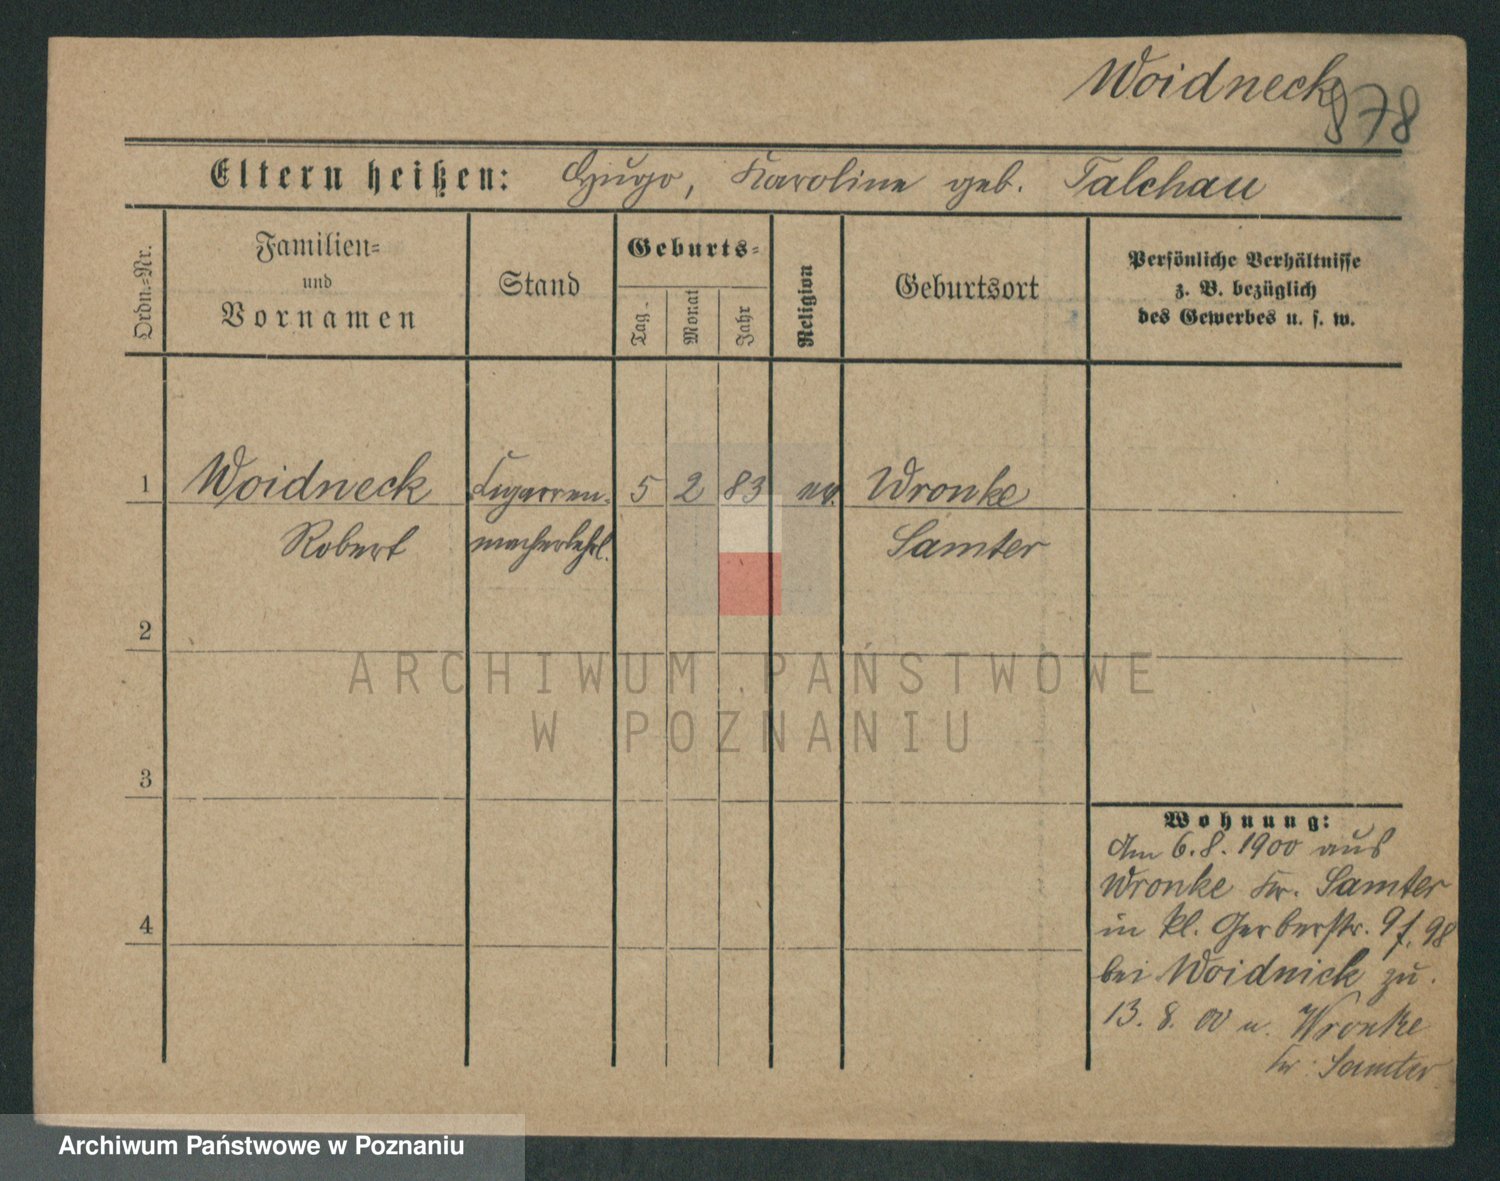 Woidneck
878
Eltern heißen: Hugo, Karoline geb. Talchau
Ordn.-Nr.
Familien-
und
Vornamen
Stand
Geburts-
Tag
Monat
Jahr
Religion
Geburtsort
Persönliche Verhältnisse
z. B. bezüglich
des Gewerbes u. s. w.
1 Woidneck Cigarren- 5 2 83 ev. Wronke
Robert macherlehrl. Samter
2
3
4
Wohnung:
Am 6.8.1900 aus
Wronke Kr. Samter
in kl. Gerberstr. 9
bei Woidnick zu.
13. 8. 00 n. Wronke
Kr. Samter
ARCHIWUM PAŃSTWOWE
W POZNANIU
Archiwum Państwowe w Poznaniu